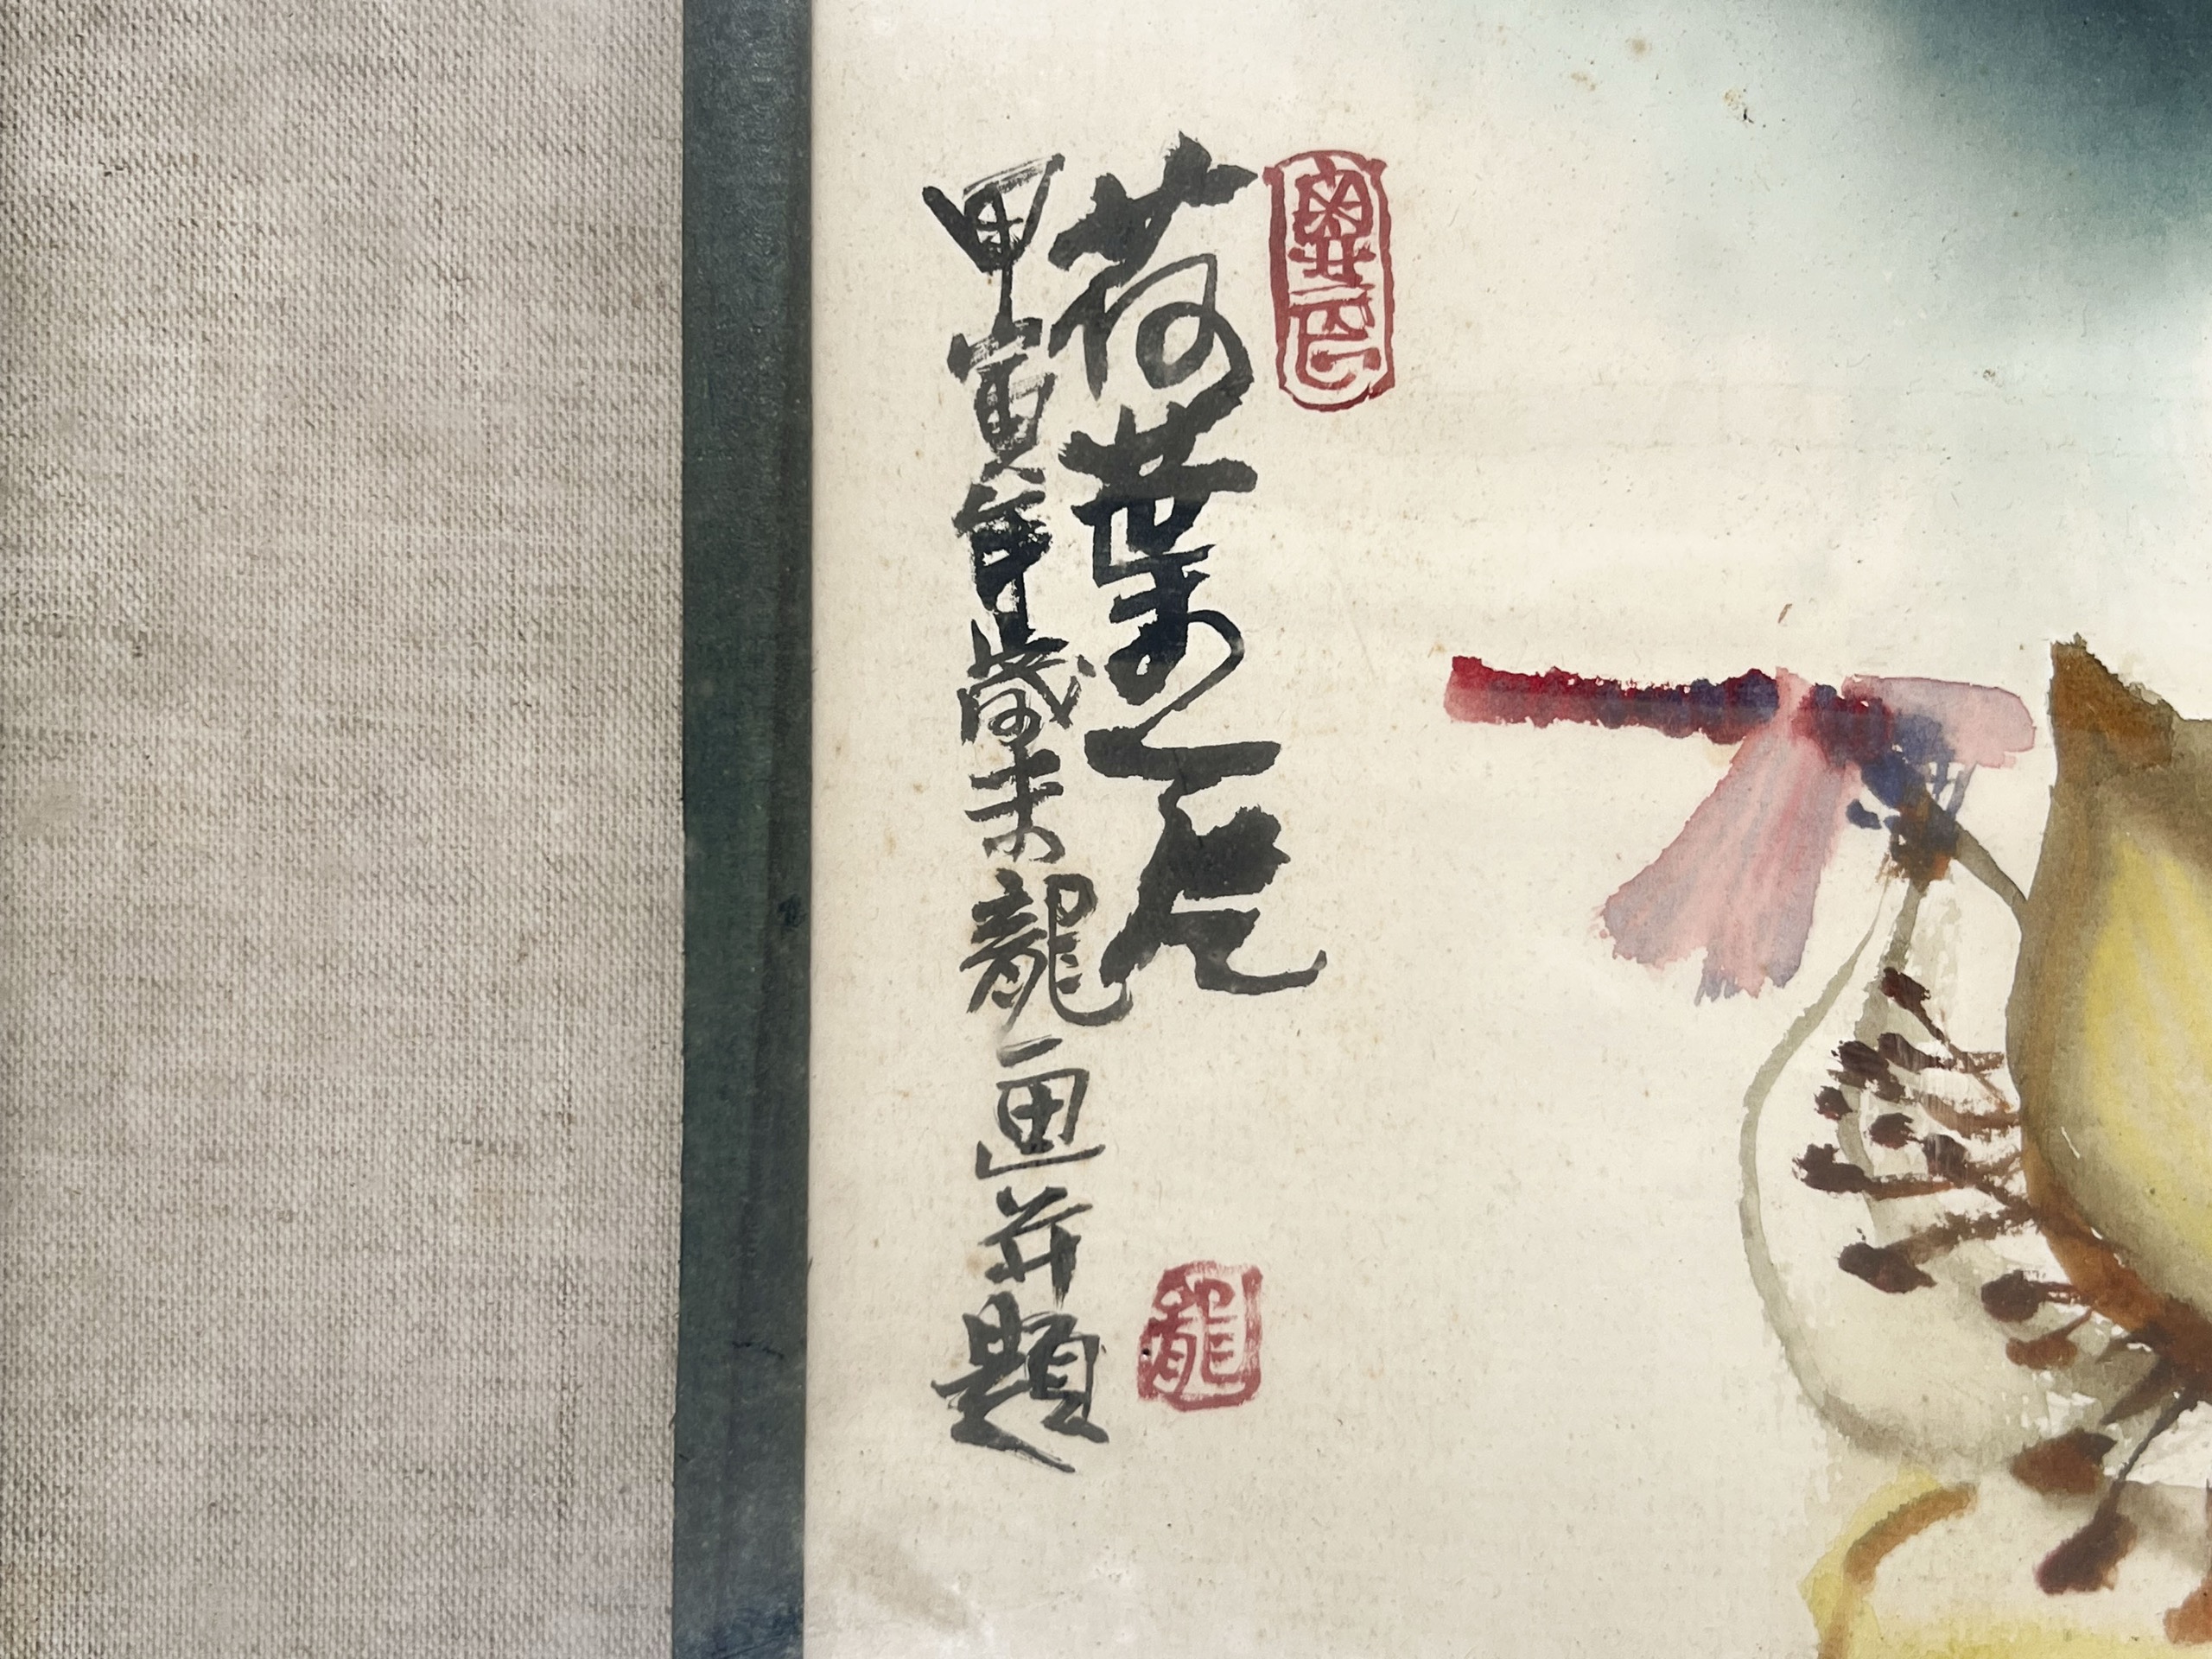 荷葉
甲寅年歲末龍画并題
龍